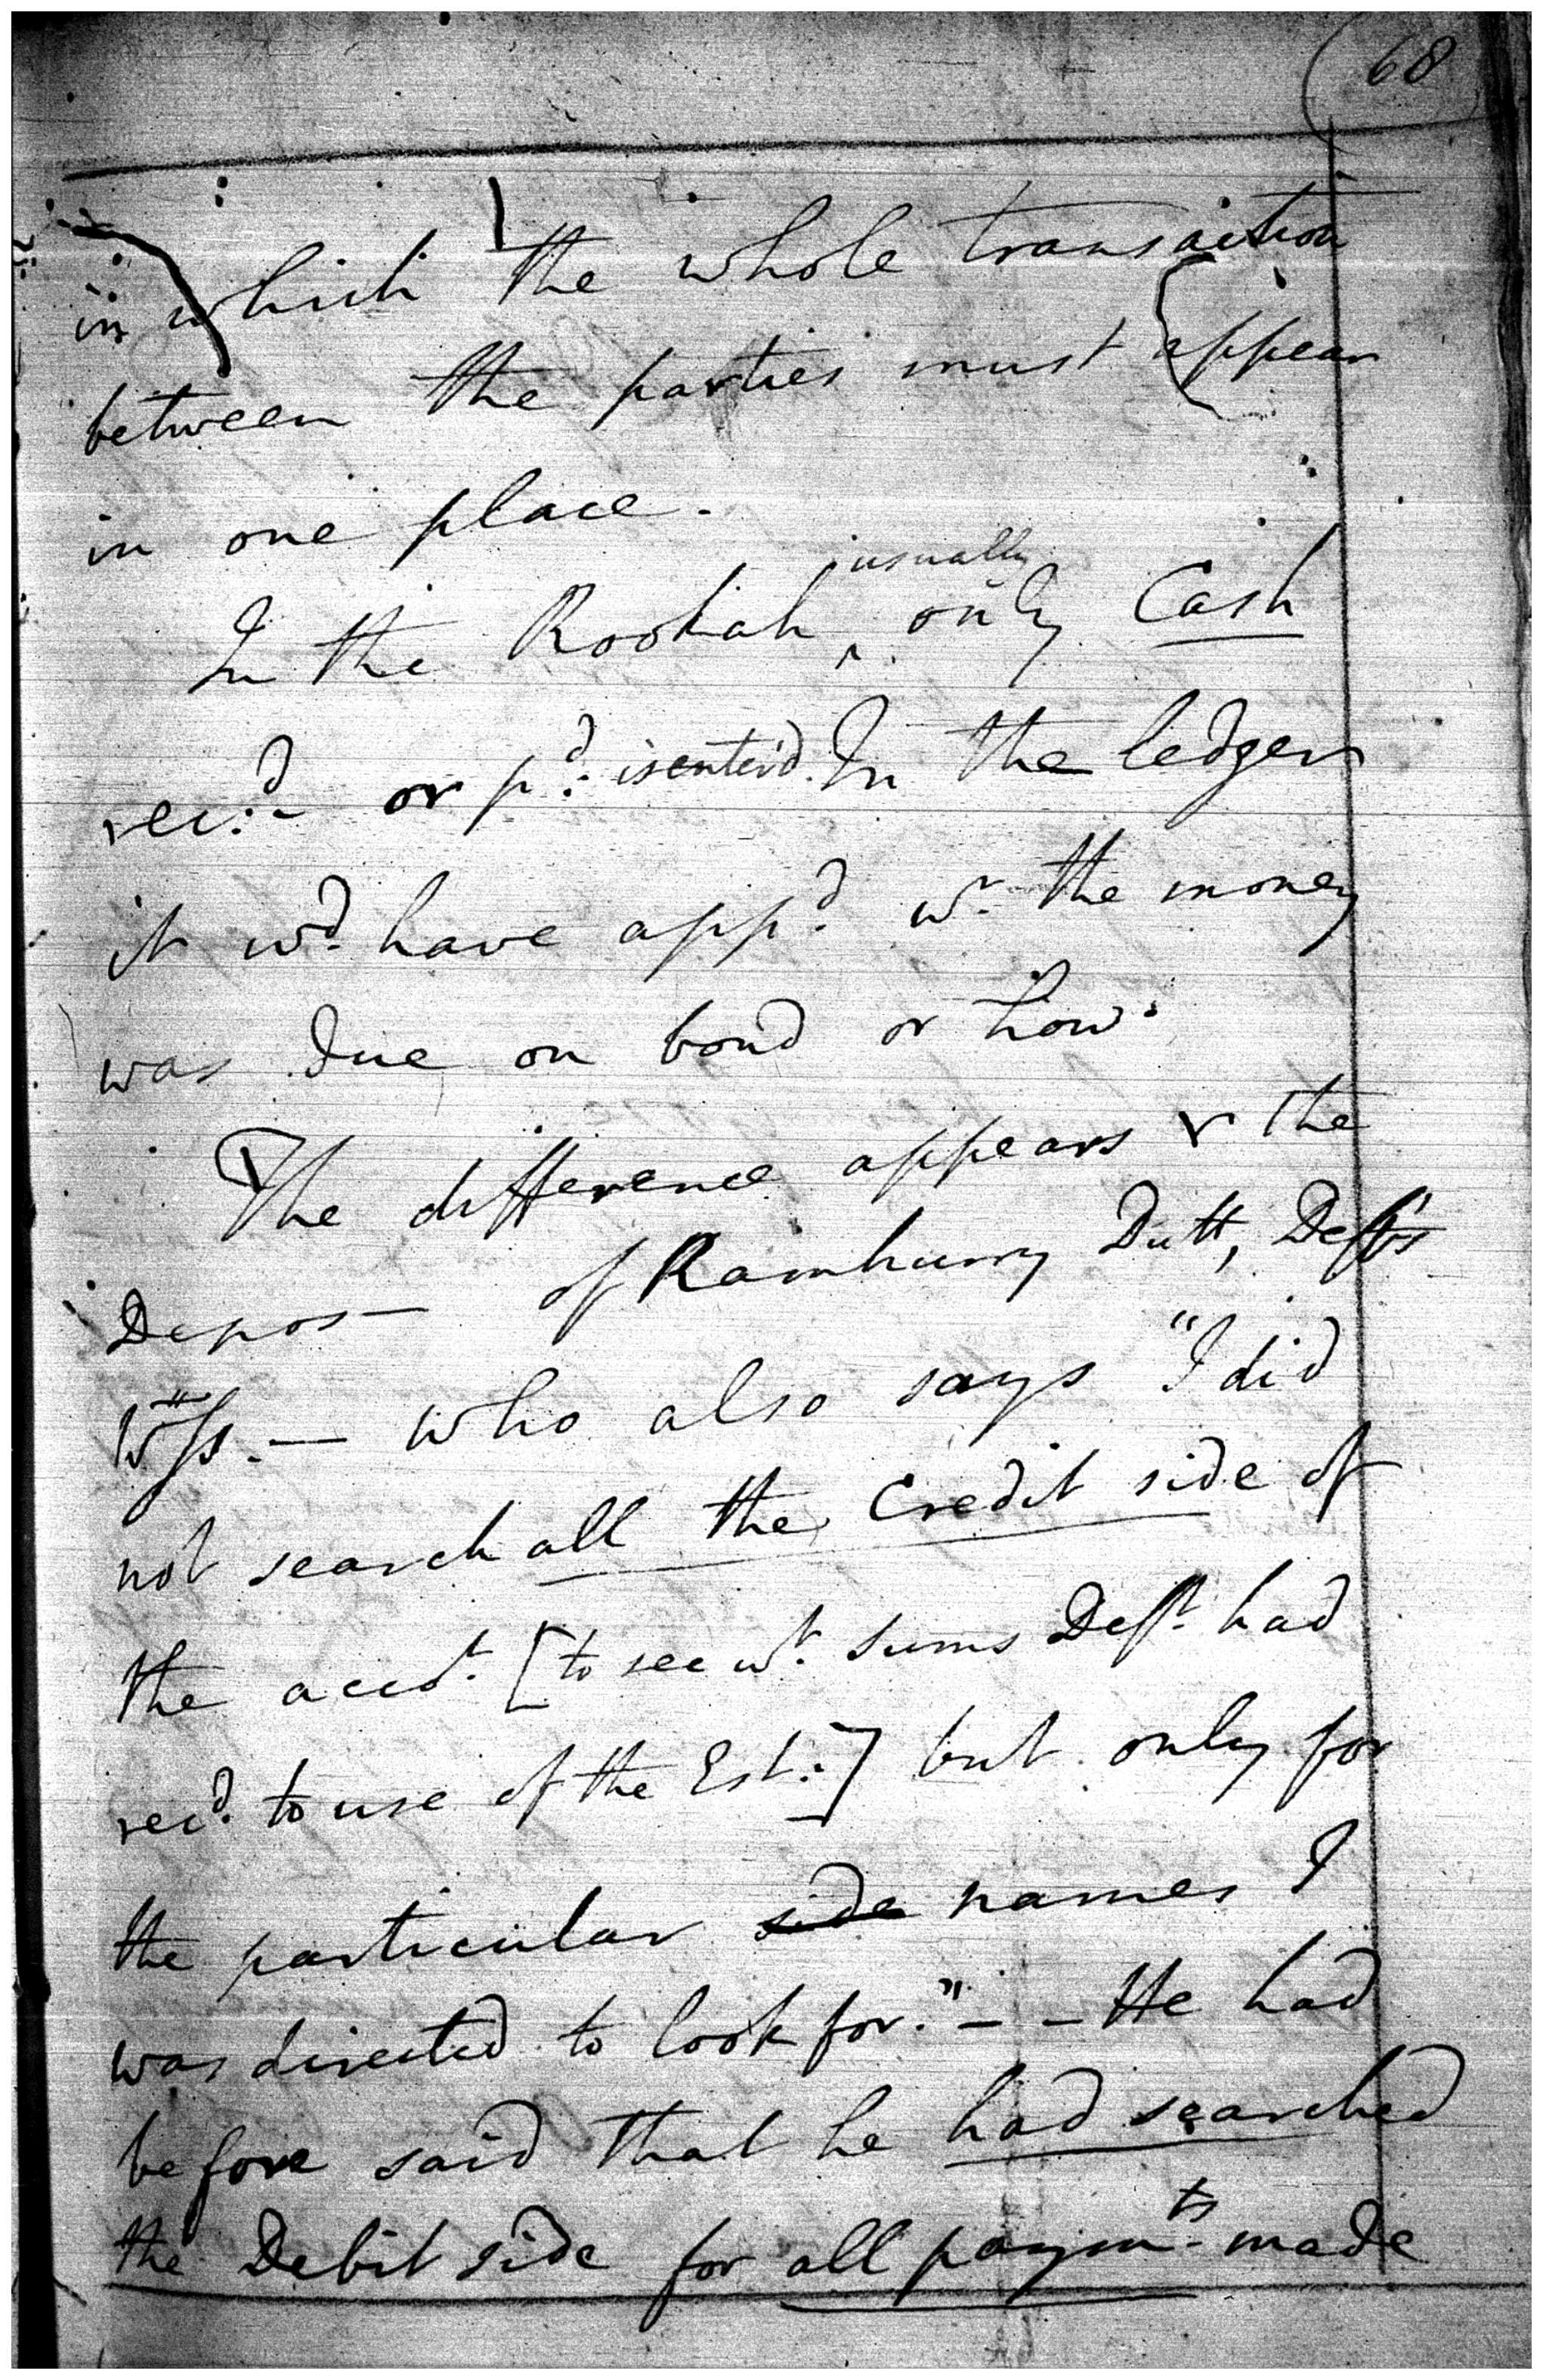 68
in which the whole transaction
between the parties must appear
in one place.
usually
In the Rookah ^ only Cash
rec:d or p:d is enter'd. In the ledger
it wd. have app:d wr. the money
was due on bond or how.
The difference appears r the
Depos— of Ramhurry Dutt, Deft's
Wss. — who also says "I did
not search all the Credit side of
the acct. [to see wt. sums Deft. had
recd. to use of the Est:] but only for
the particular side names I
was directed to look for." – – He had
before said that he had searched
the Debit side for all paymts. made